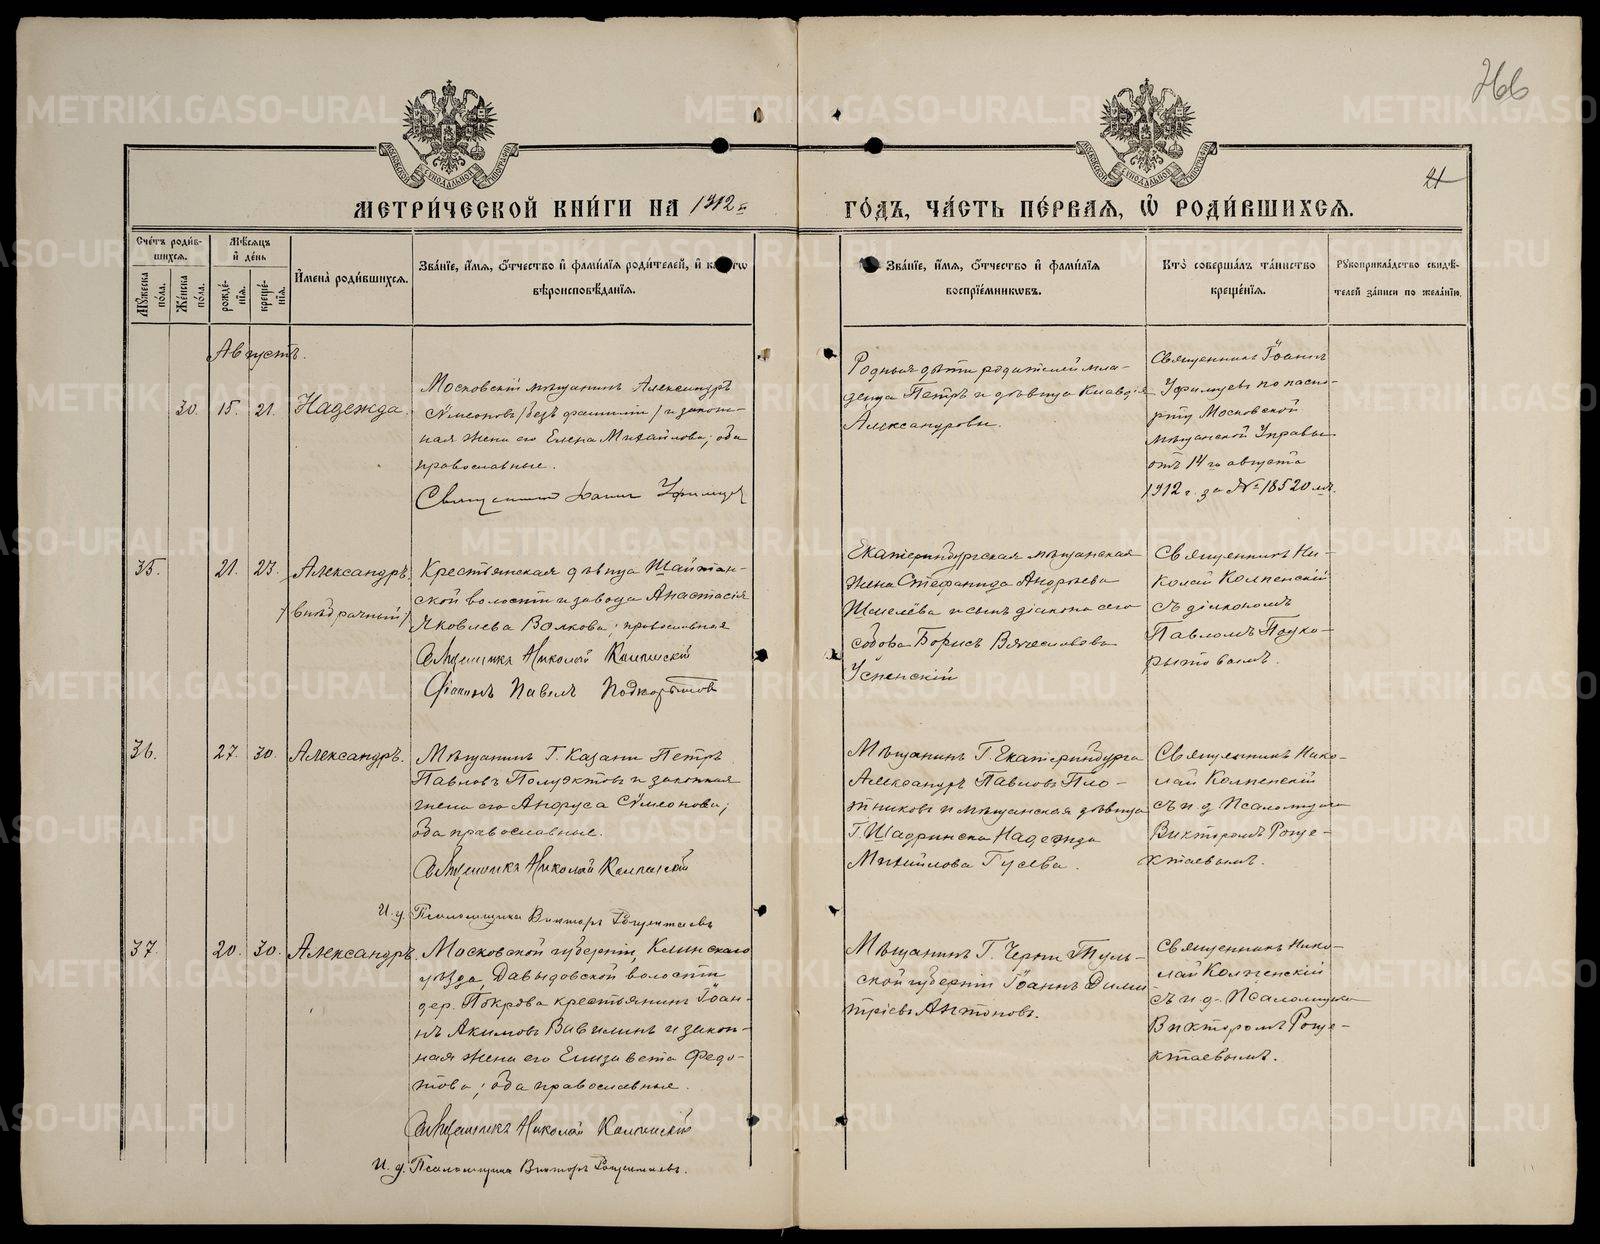 266
21
МЕТРИЧЕСКОЙ КНИГИ НА 1912 г.
ГОДЪ, ЧАСТЬ ПЕРВАЯ, Ѡ РОДИВШИХСЯ.
Счетъ родившихся.
Мужеска пола.
Женска пола.
Мѣсяцъ и день
рожденія.
крещенія.
Имена родившихся.
Званіе, имя, отчество и фамилія родителей, и какого
вѣроисповѣданія.
Званіе, имя, отчество и фамилія
воспріемниковъ.
Кто совершалъ таинство
крещенія.
Рукоприкладство свидѣ-
телей записи по желанію.
Августъ.
30. 15. 21. Надежда.
Московскій мѣщанинъ Александръ
Сѵмеоновъ /безъ фамиліи/ и закон-
ная жена его Елена Михайлова; оба
православные.
Священникъ Іоаннъ Уфимцевъ
Родныя дѣти родителей мла-
денца Петръ и дѣвица Клавдія
Александровы.
Священникъ Іоаннъ
Уфимцевъ по паспо-
рту Московской
мѣщанской Управы
отъ 14 го августа
1912 г. за № 18520 мъ.
35. 21. 23. Александръ.
/внѣбрачный/
Крестьянская дѣвица Шайтан-
ской волости и завода Анастасія
Яковлева Волкова; православная
Священникъ Николай Колпенскій
Діаконъ Павелъ Подкорытовъ
Екатеринбургская мѣщанская
жена Стефанида Андреева
Шмелёва и сынъ діакона сего
собора Борисъ Вячеславовъ
Успенскій
Священникъ Ни-
колай Колпенскій
съ діакономъ
Павломъ Подко-
рытовымъ.
36. 27. 30. Александръ.
Мѣщанинъ Г. Казани Петръ
Павловъ Полуэктовъ и законная
жена его Анфуса Сѵмеонова;
оба православные.
Священникъ Николай Колпенскій
И. д. Псаломщика Викторъ Рощектаевъ
Мѣщанинъ Г. Екатеринбурга
Александръ Павловъ Пло-
тниковъ и мѣщанская дѣвица
Г. Шадринска Надежда
Михайлова Гусева.
Священникъ Нико-
лай Колпенскій
съ и. д. Псаломщика
Викторомъ Роще-
ктаевымъ.
37. 20. 30. Александръ.
Московской губерніи, Клинскаго
уѣзда, Давыдовской волости
дер. Покрова крестьянинъ Іоан-
нъ Акимовъ Вавилинъ и закон-
ная жена его Елизавета Федо-
това; оба православные.
Священникъ Николай Колпенскій
И. д. Псаломщика Викторъ Рощектаевъ.
Мѣщанинъ Г. Черни Туль-
ской губерніи Іоаннъ Дими
тріевъ Антоновъ.
Священникъ Нико-
лай Колпенскій
съ и. д. Псаломщика
Викторомъ Роще-
ктаевымъ.
METRIKI.GASO-URAL.RU